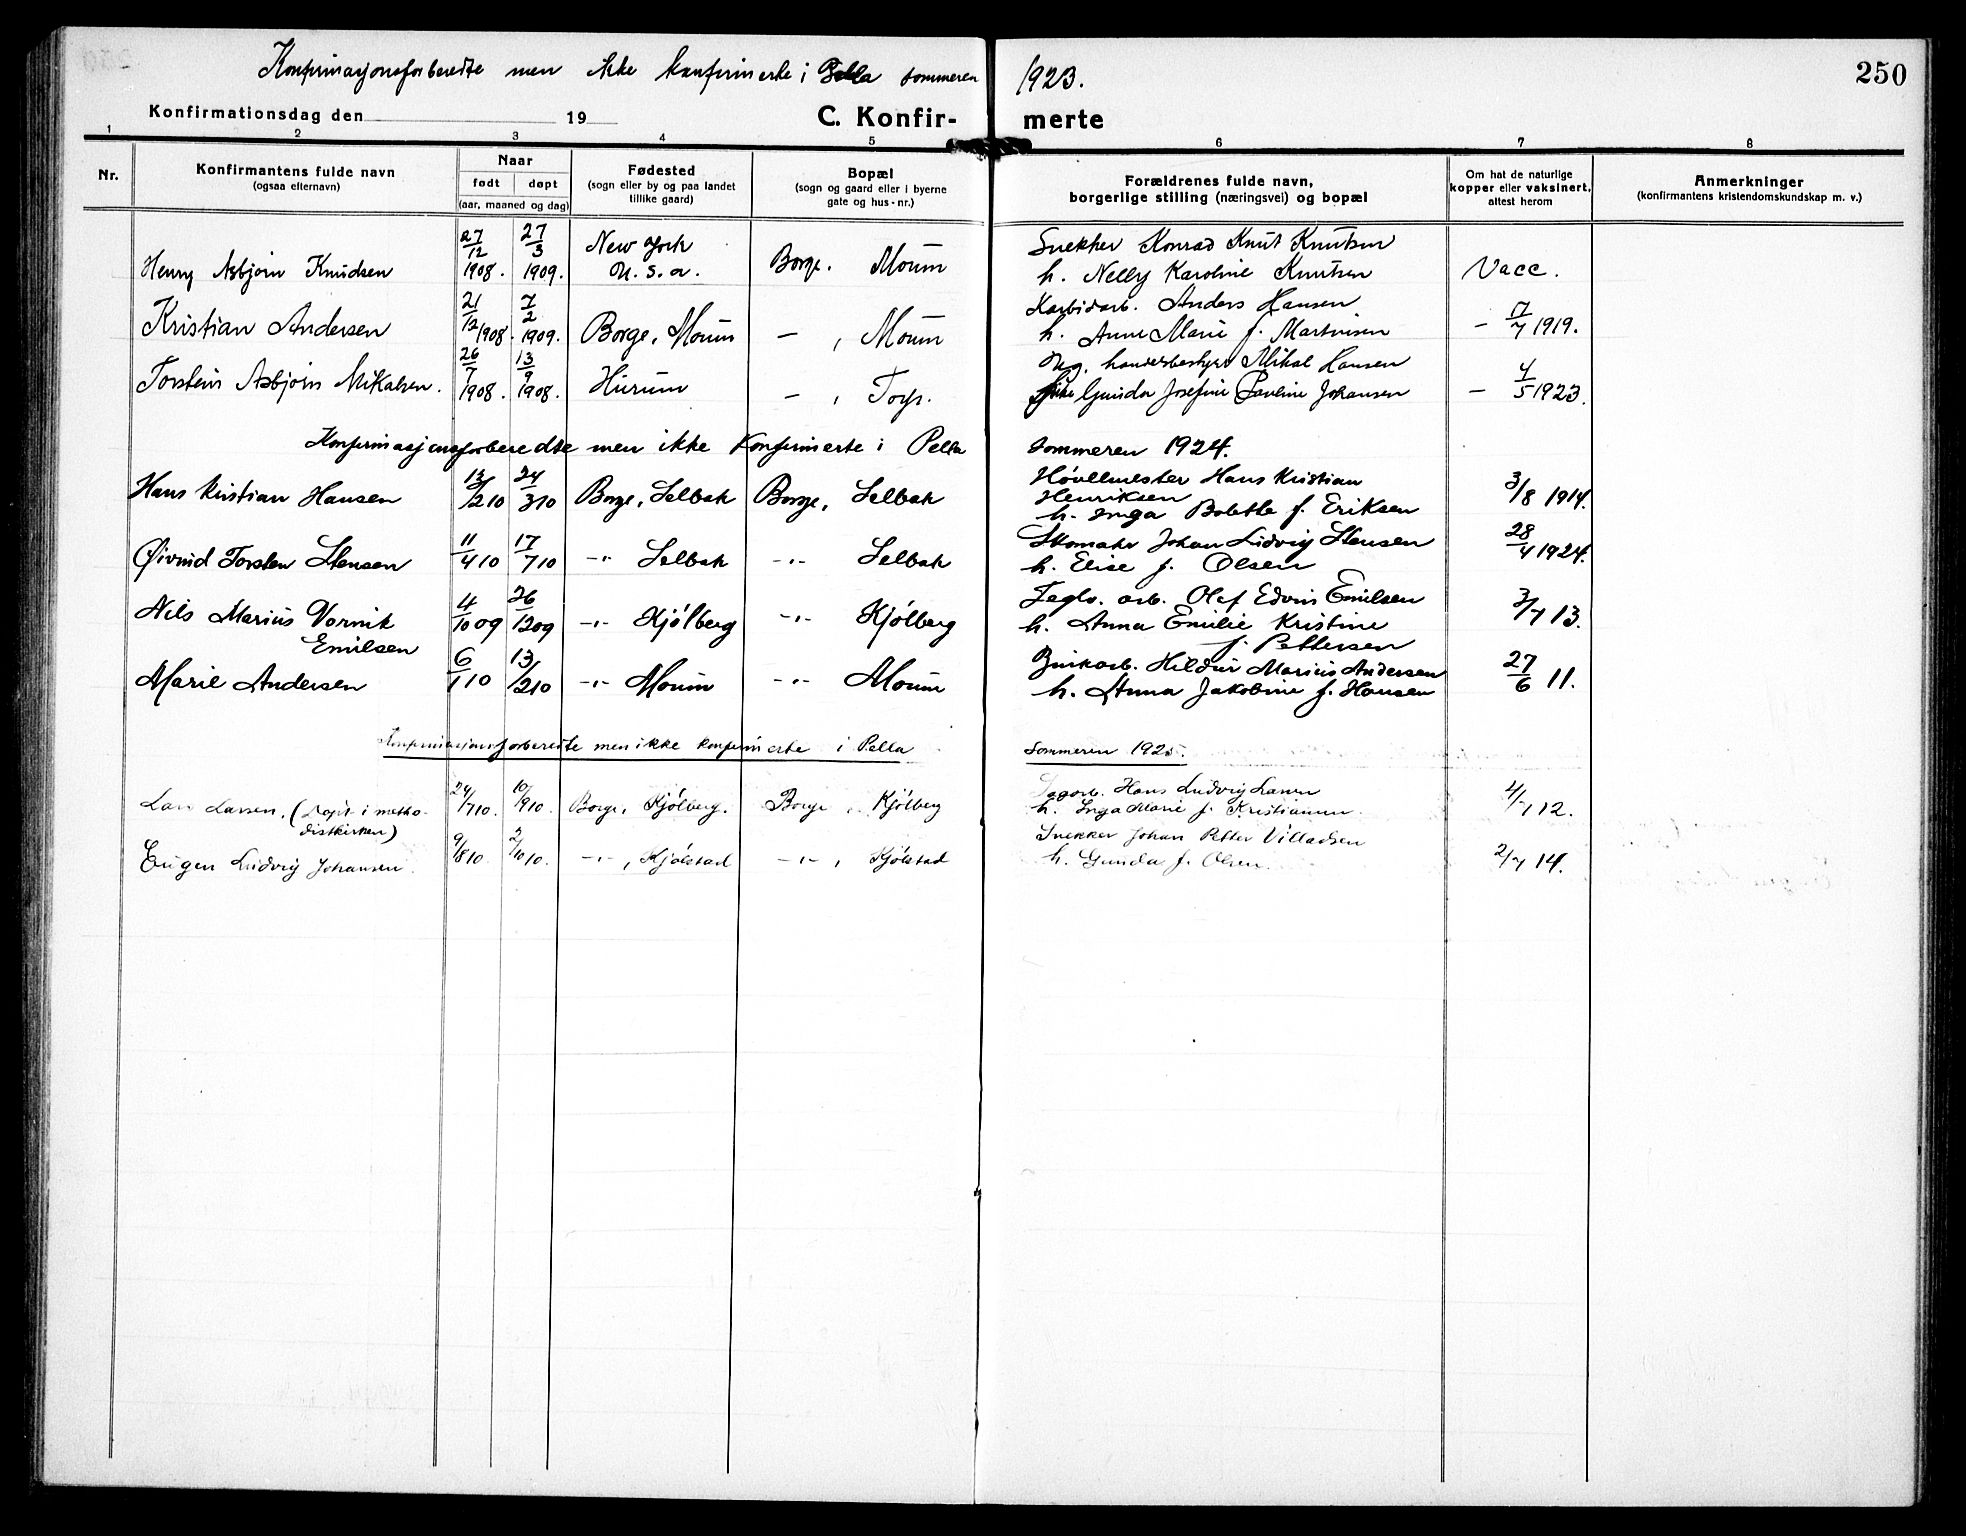 Konfirmasjonsforberedte men ikke konfirmerte i Pella sommeren 1923.
250
Konfirmationsdag den 19
C. Konfir- merte
1 2 3 4 5 6 7 8
Nr.
Konfirmantens fulde navn
(ogsaa efternavn)
Naar
født døpt
(aar, maaned og dag)
Fødested
(sogn eller by og paa landet
tillike gaard)
Bopæl
(sogn og gaard eller i byerne
gate og hus-nr.)
Forældrenes fulde navn,
borgerlige stilling (næringsvei) og bopæl
Om hat de naturlige
kopper eller vaksinert,
attest herom
Anmerkninger
(konfirmantens kristendomskundskap m. v.)
27/12 27/3 New York Snekker Konrad Knut Knutsen
Henry Asbjørn Knudsen 1908. 1909. U.S.a. Borge. Moum h. Nelly Karoline Knutsen Vacc.
21/12 7/2 Karbidarb. Anders Hansen
Kristian Andersen 1908. 1909. Borge, Moum - , Moum h. Anne Marie f. Martinsen - 17/7 1919.
26/7 13/9 Mikal Hansen
Torstein Asbjørn Mikalsen. 1908. 1908. Hurum - , Torp. Gunda Josefine Pauline Johansen - 4/5 1923.
Konfirmasjonsforberedte men ikke Konfirmerte i Pella sommeren 1924.
Høvlemester Hans Kristian
Hans Kristian Hansen 13/2 10 24/3 10 Borge, Selbak Borge, Selbak Henriksen 3/8 1914.
h. Inga Bolette f. Eriksen
Skomaker Johan Ludvig Stensen
Øivind Torsten Stensen 11/4 10 17/7 10 -"- Selbak -"- Selbak h. Elise f. Olsen 28/4 1924.
Teglv. arb. Olaf Edvin Emilsen
Nils Marius Vornik 4/10 09 26/12 09 -"- Kjølberg -"- Kjølberg h. Anna Emilie Kristine 3/7 13.
Emilsen f. Pettersen
Brukarb. Hildur Marius Andersen
Marie Andersen 6/1 10 13/2 10 -"- Moum -"- Moum h. Anna Jakobine f. Hansen 27/6 11.
Konfirmasjonsforberedte men ikke konfirmerte i Pella Sommeren 1925.
Hans Ludvig Larsen
Lars Larsen. (Døpt i metho- 24/7 10. 10/9 10. Borge, Kjølberg. Borge, Kjølberg h. Inga Marie f. Kristiansen. 4/7 12.
distkirken)
Snekker Johan Petter Villadsen
Eugen Ludvig Johansen. 9/8 10. 2/10 10. -"-, Kjølstad -"-, Kjølstad h. Gunda f. Olsen. 2/7 14.